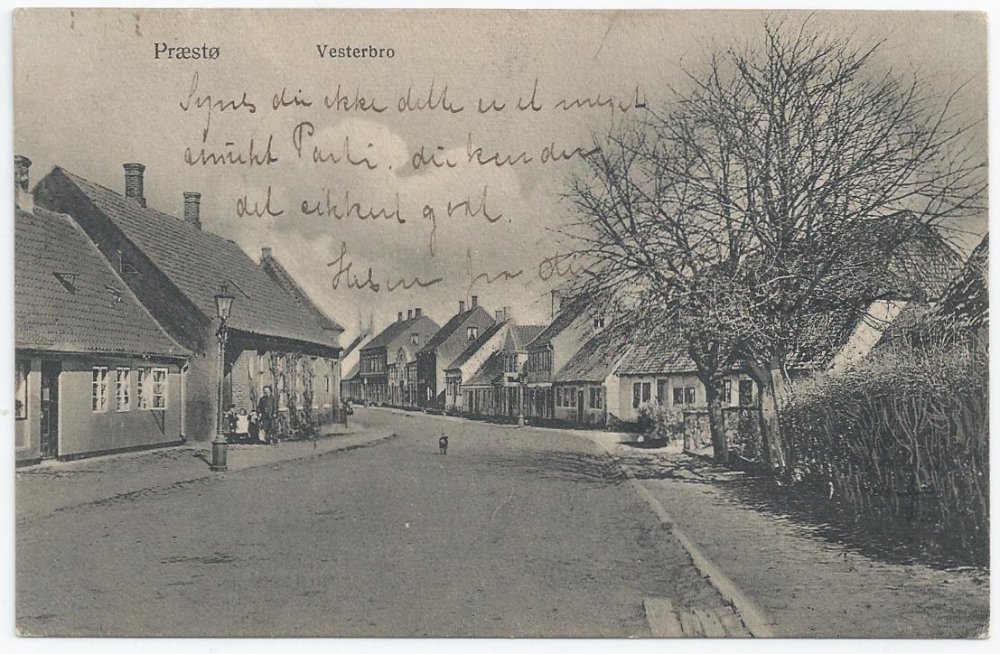 Præstø Vesterbro
Synes du ikke dette er et meget
smukt Parti, du kender
det sikkert godt.
Hilsen fra